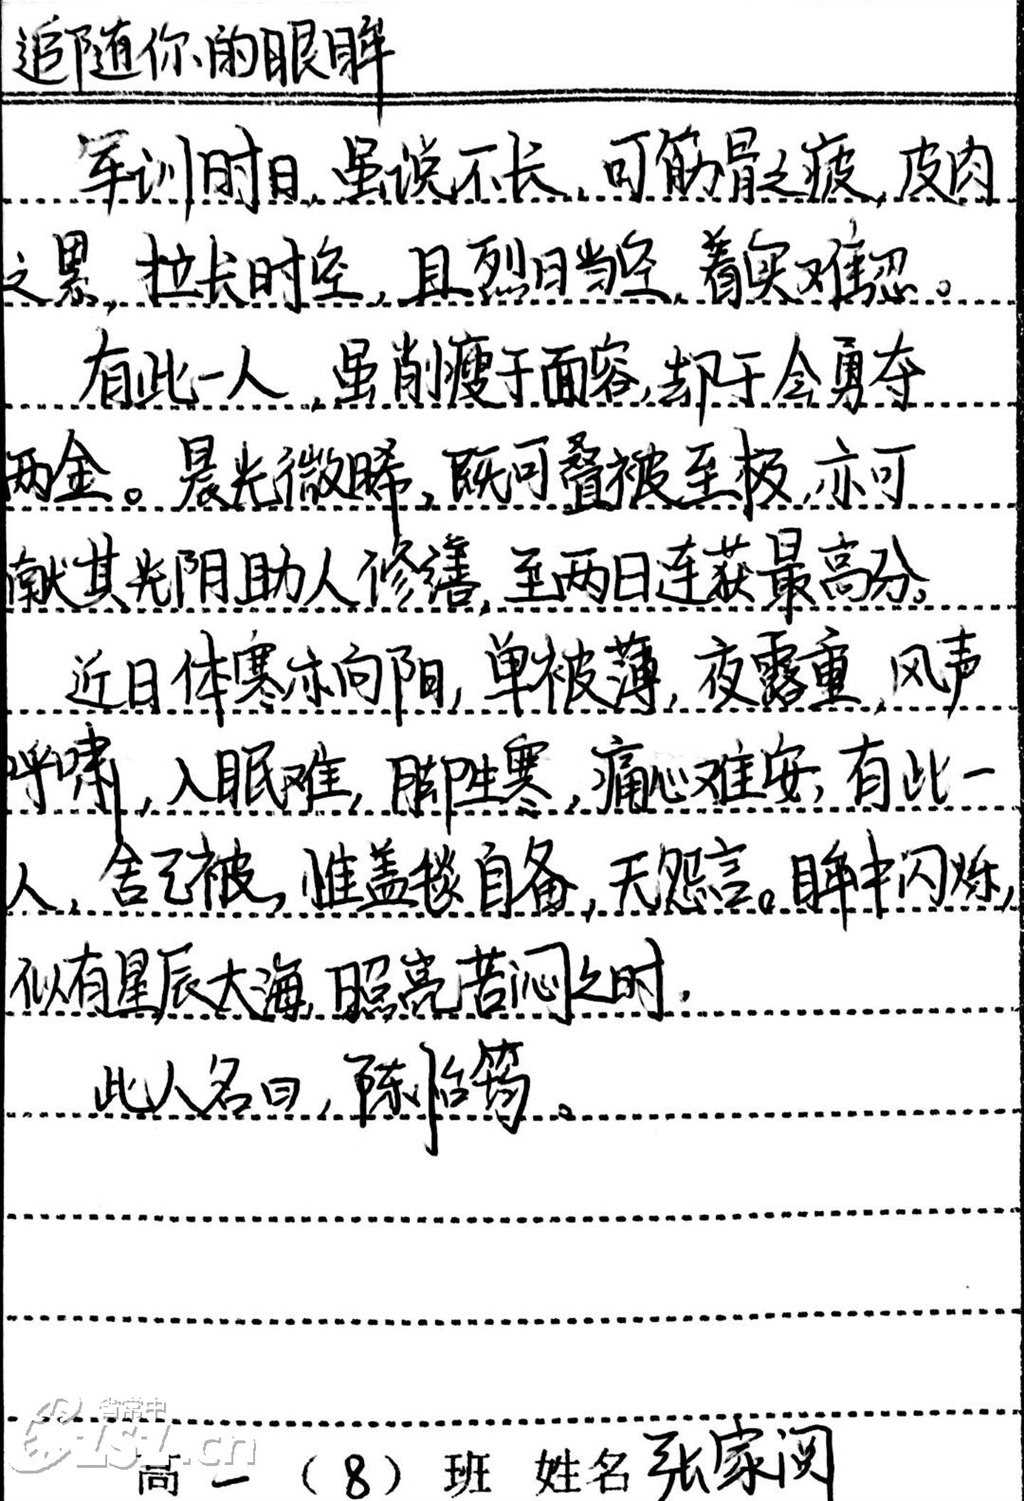 追随你的眼眸
军训时日,虽说不长,可筋骨之疲,皮肉
之累,拉长时空,且烈日当空,着实难忍。
有此一人,虽削瘦于面容,却于会勇夺
两金。晨光微晞,既可叠被至极,亦可
献其光阴助人修缮,至两日连获最高分。
近日体寒亦向阳,单被薄,夜露重,风声
呼啸,入眠难,脚生寒,痛心难安,有此一
人,舍己被,惟盖毯自备,无怨言。眸中闪烁,
似有星辰大海,照亮苦闷之时.
此人名曰,陈怡筠。
省常中
CSZ.cn
高一(8)班 姓名 张家闵